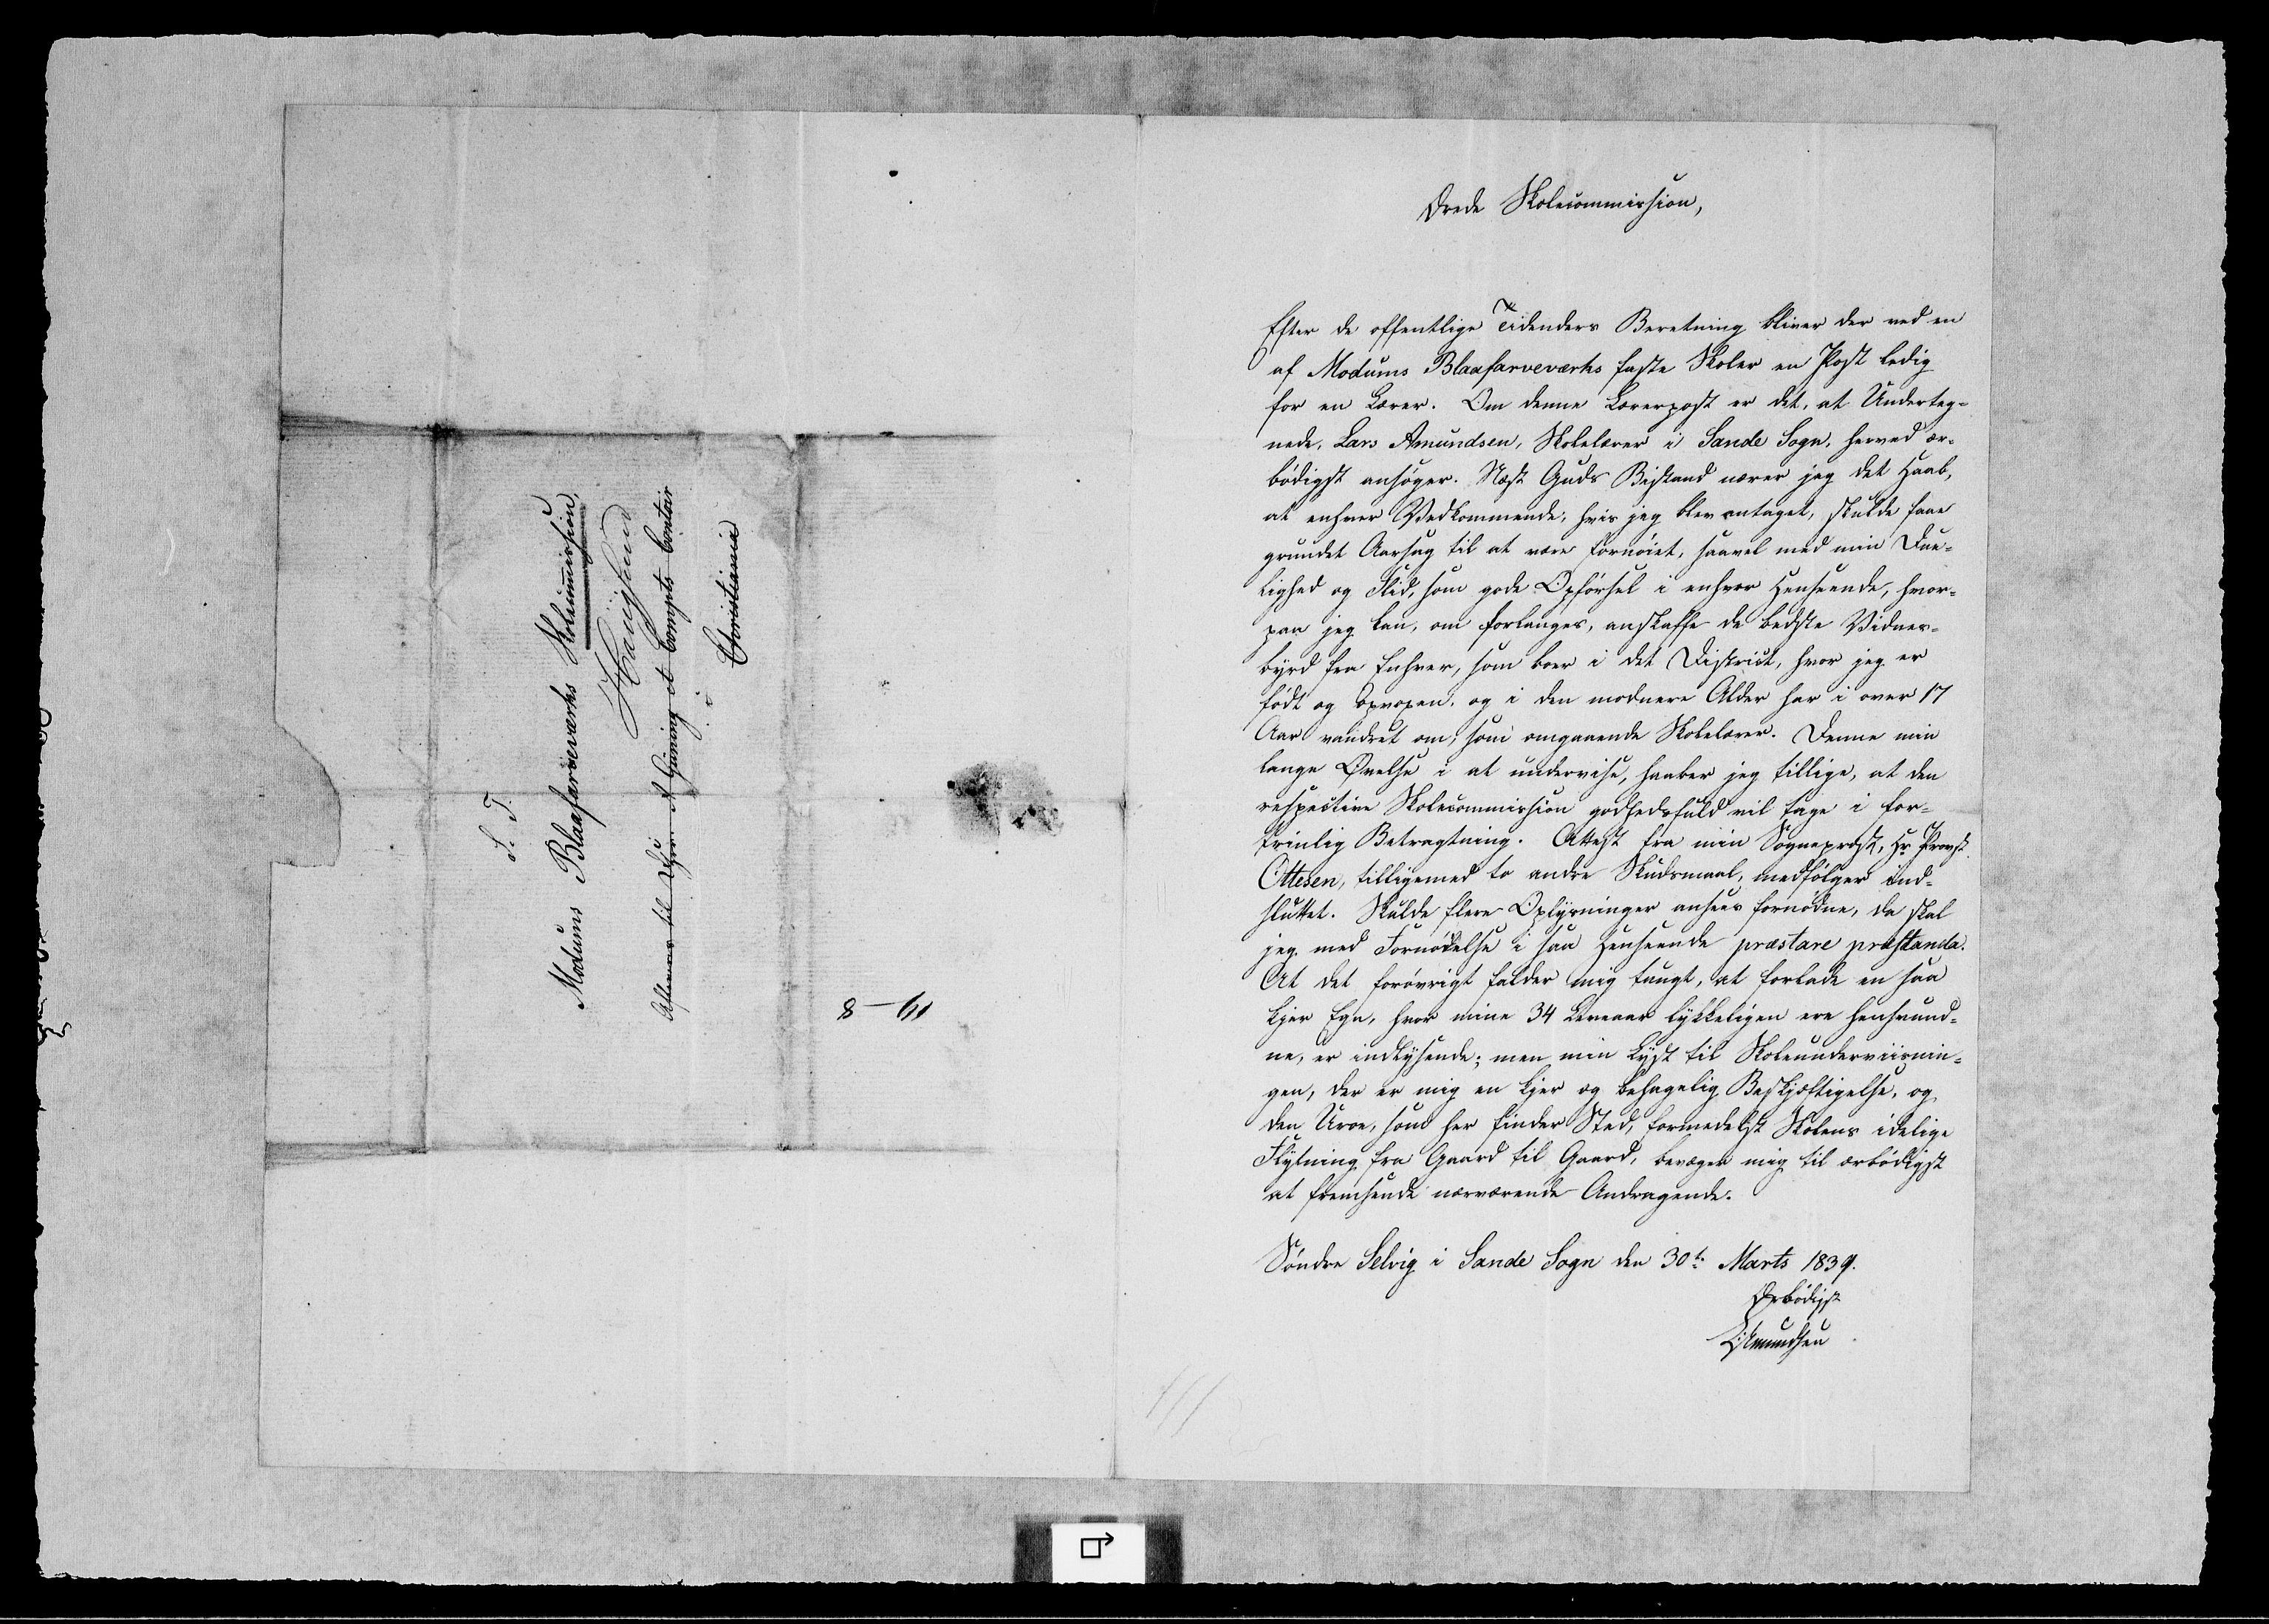 S. T.
Modums Blaafarveværks Skolecommission
Haugsund
Afleveres til Hrr A Grüning et Compts Contoir
i
Christiania
8 – 61
Ærede Skolecommission,
Efter de offentlige Tidenders Beretning bliver der ved en
af Modums Blaafarveværks faste Skoler en Post ledig
for en Lærer. Om denne Lærerpost er det, at Underteg-
nede, Lars Amundsen, Skolelærer i Sande Sogn, herved ær-
bødigst ansøger. Næst Guds Bistand nærer jeg det Haab,
at enhver Vedkommende, hvis jeg blev antaget, skulde faae
grundet Aarsag til at være fornøiet, saavel med min Due-
lighed og Flid, som gode Opførsel i enhver Henseende, hvor-
paa jeg kan, om forlanges, anskaffe de bedste Vidnes-
byrd fra Enhver, som boer i det District, hvor jeg er
født og opvoxen, og i den modnere Alder har i over 17
Aar vandret om, som omgaaende Skolelærer. Denne min
lange Øvelse i at undervise, haaber jeg tillige, at den
respective Skolecommission godhedsfuld vil tage i for-
trinlig Betragtning. Attest fra min Sognepræst, Hr Provst
Ottesen, tilligemed to andre Skudsmaal, medfølger ind-
sluttet. Skulde flere Oplysninger ansees fornødne, da skal
jeg med Fornøielse i saa Henseende præstare præstanda.
At det forøvrigt falder mig tungt, at forlade en saa
kjer Egn, hvor mine 34 Leveaar lykkeligen ere hensvund-
ne, er indlysende; men min Lyst til Skoleunderviisnin-
gen, der er mig en kjer og behagelig Beskjæftigelse, og
den Uroe, som her finder Sted, formedelst Skolens idelige
Flytning fra Gaard til Gaard, bevæger mig til ærbødigst
at fremsende nærværende Andragende.
Søndre Selvig i Sande Sogn den 30te Marts 1839.
Ærbødigst
L. Amundsen